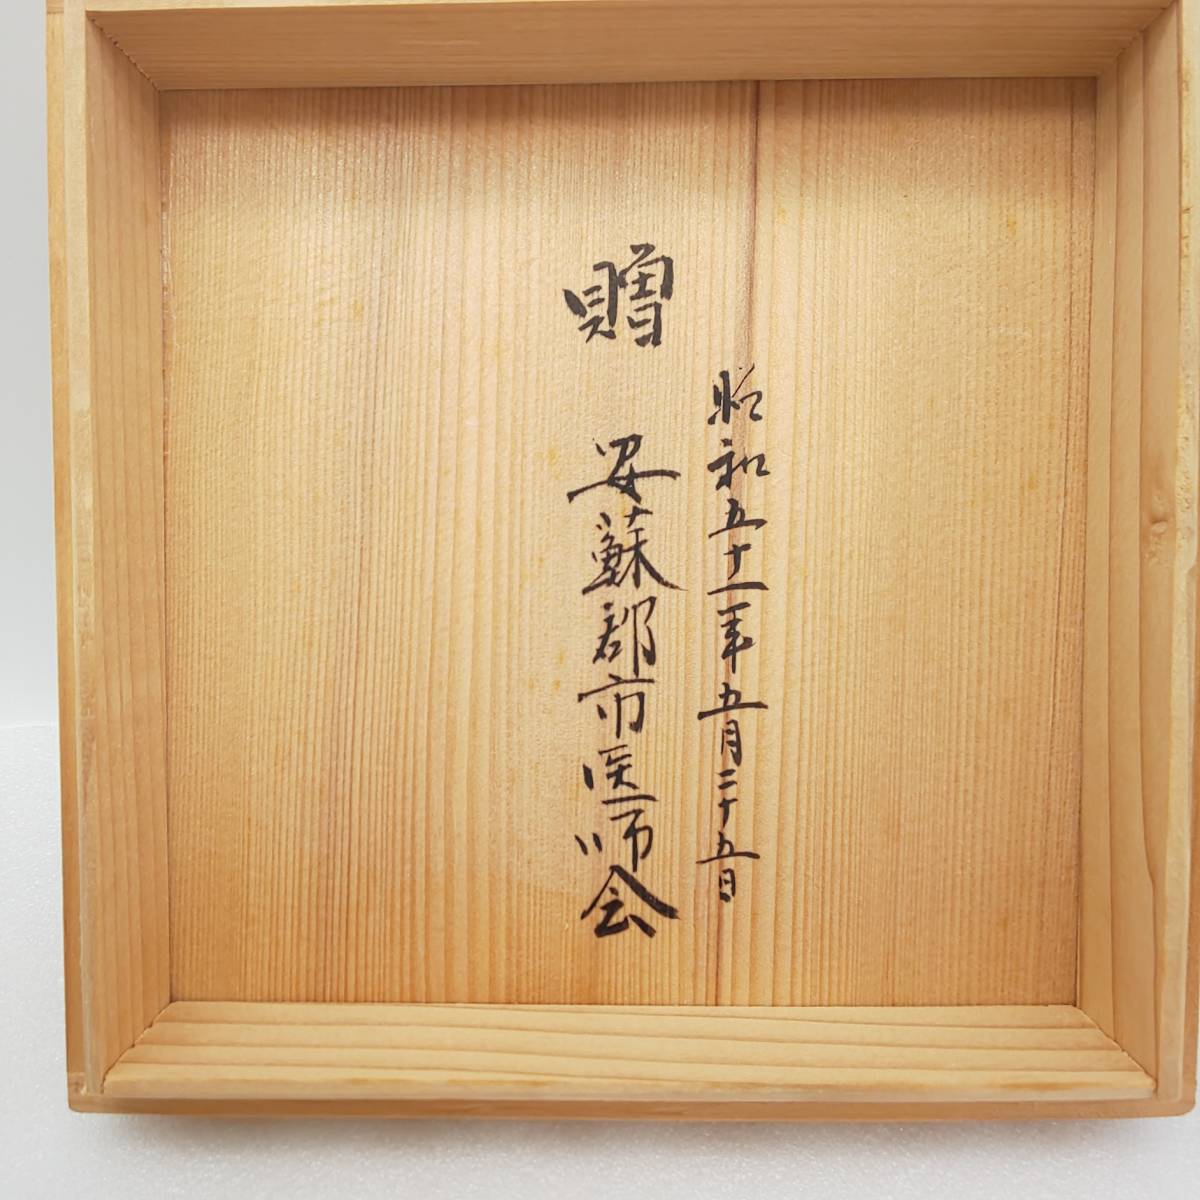 昭和五十一年五月二十五日
贈 安蘇郡市医師会